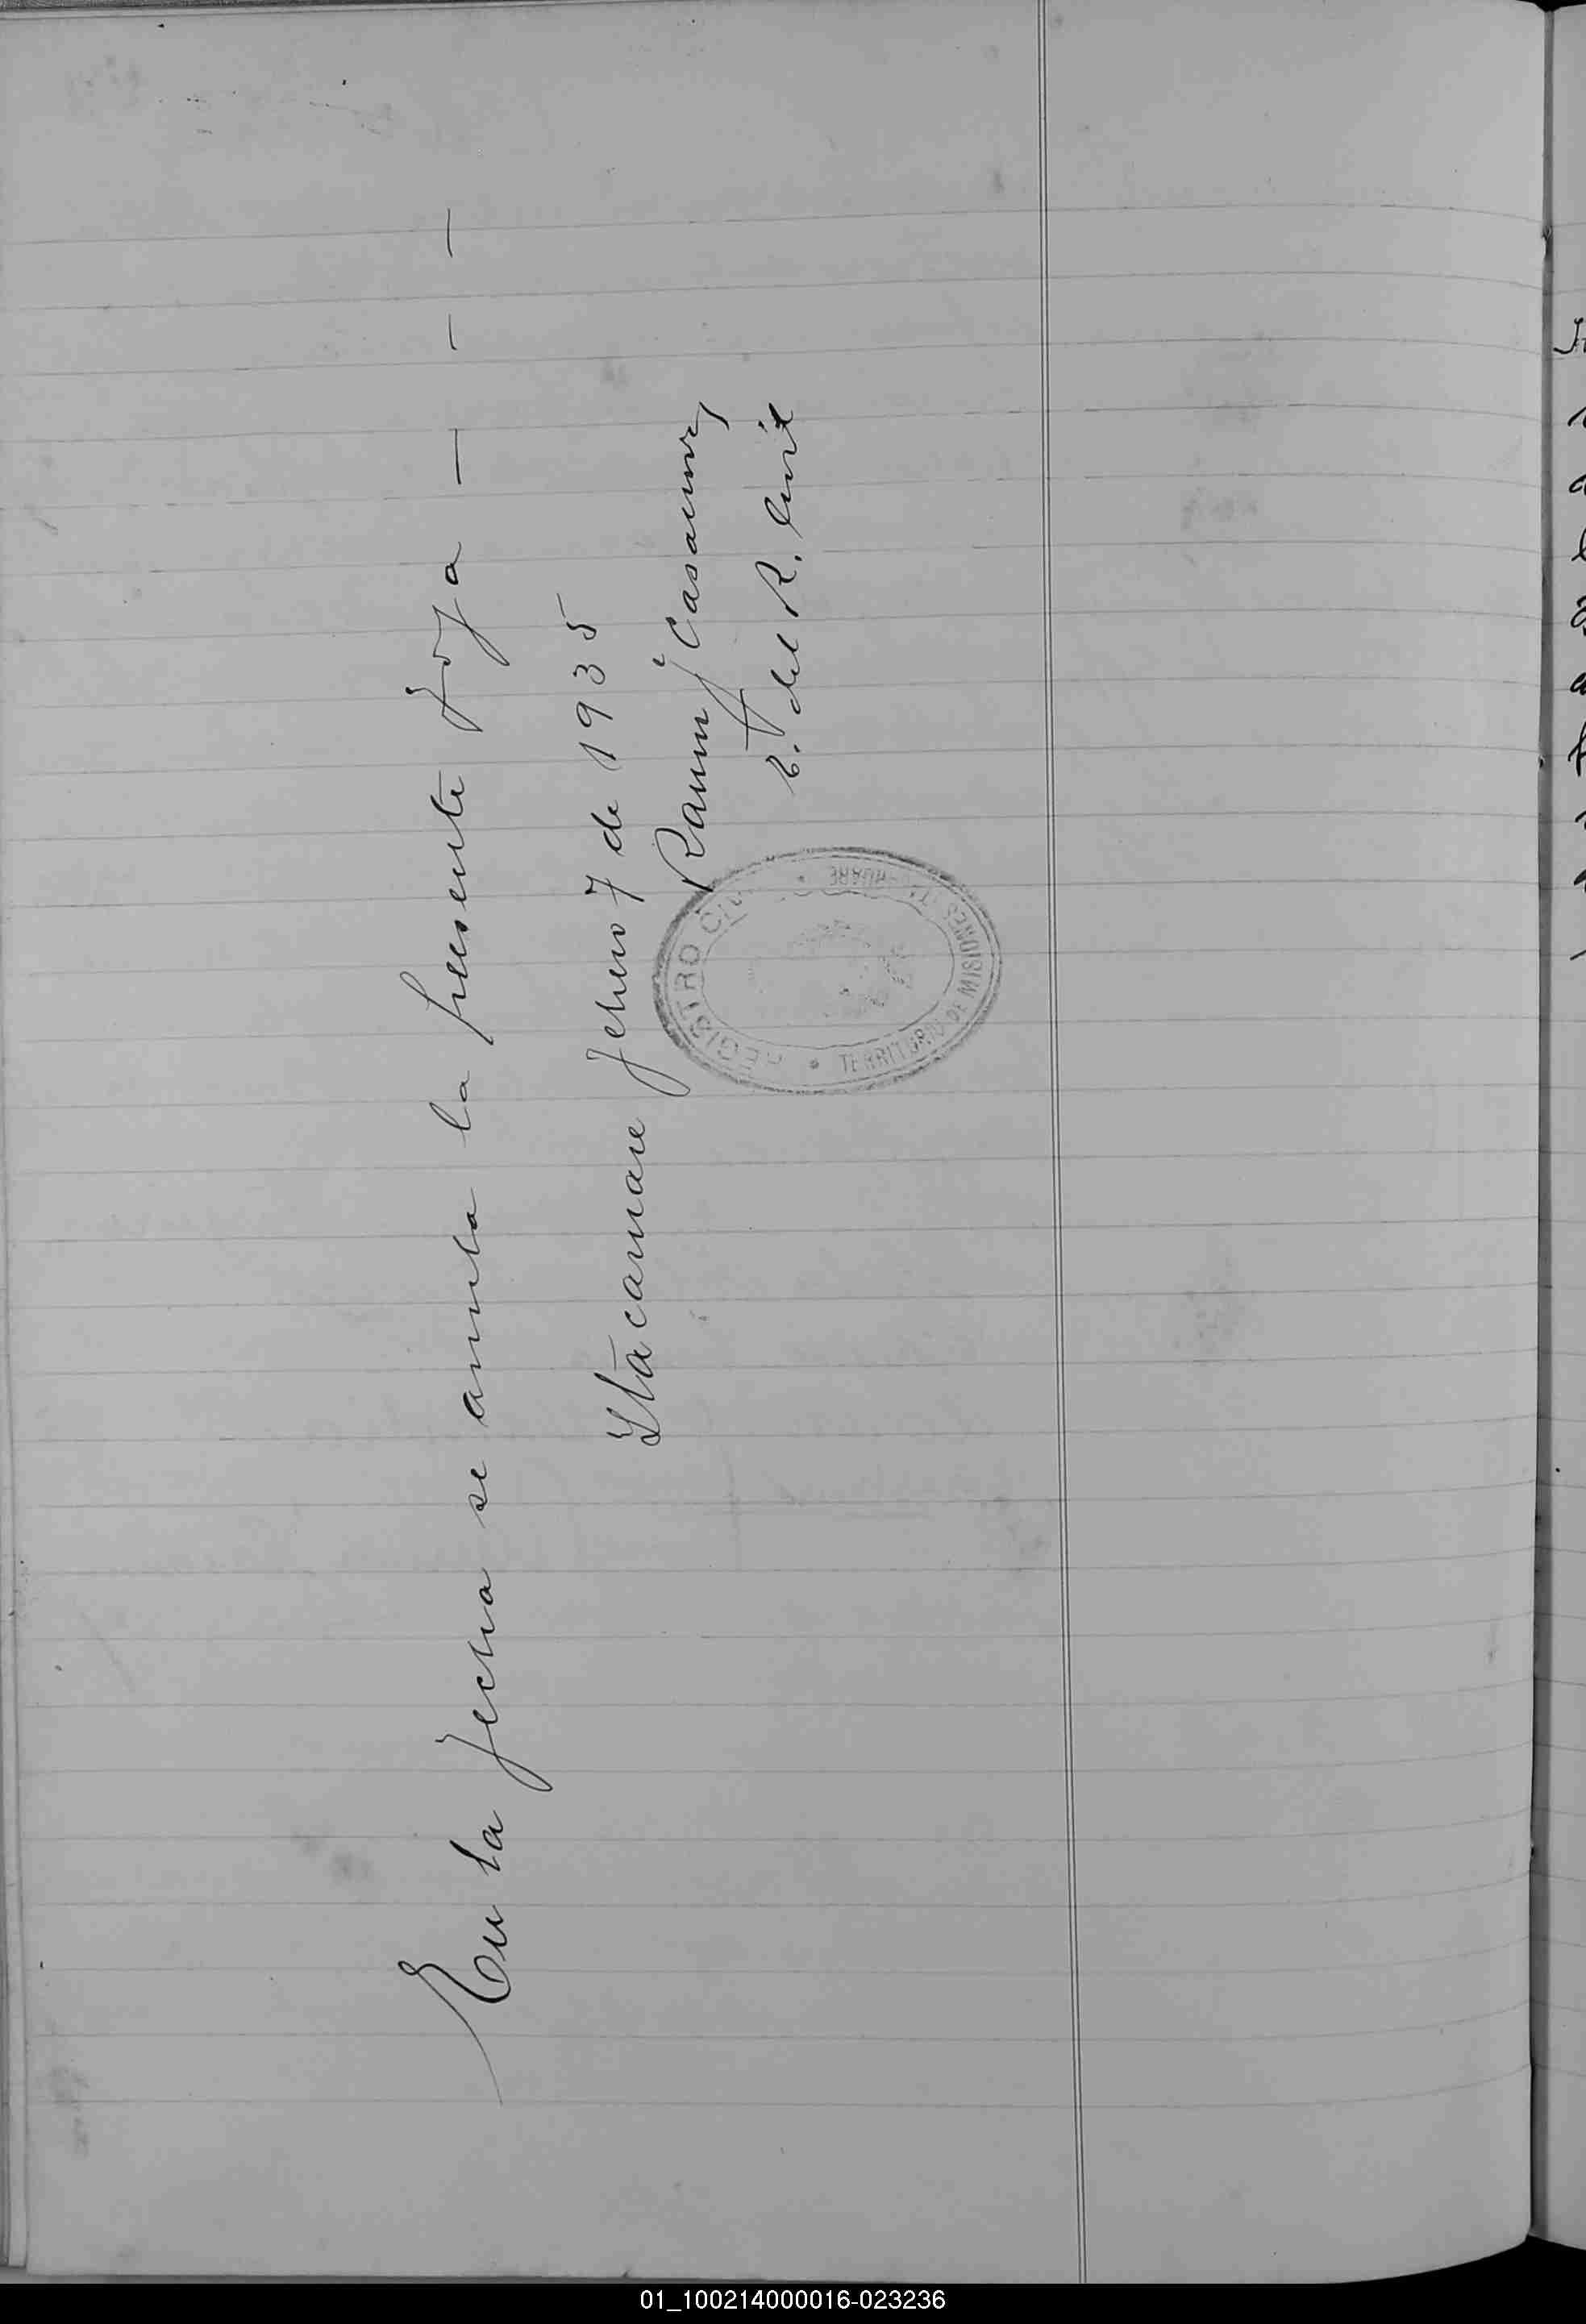 En la fecha se anula la presente foja — — —
Itacaruare Enero 7 de 1935
Ramn Casamn
E. del R. Civil
REGISTRO CIVIL
TERRITORIO DE MISIONES
01_100214000016-023236